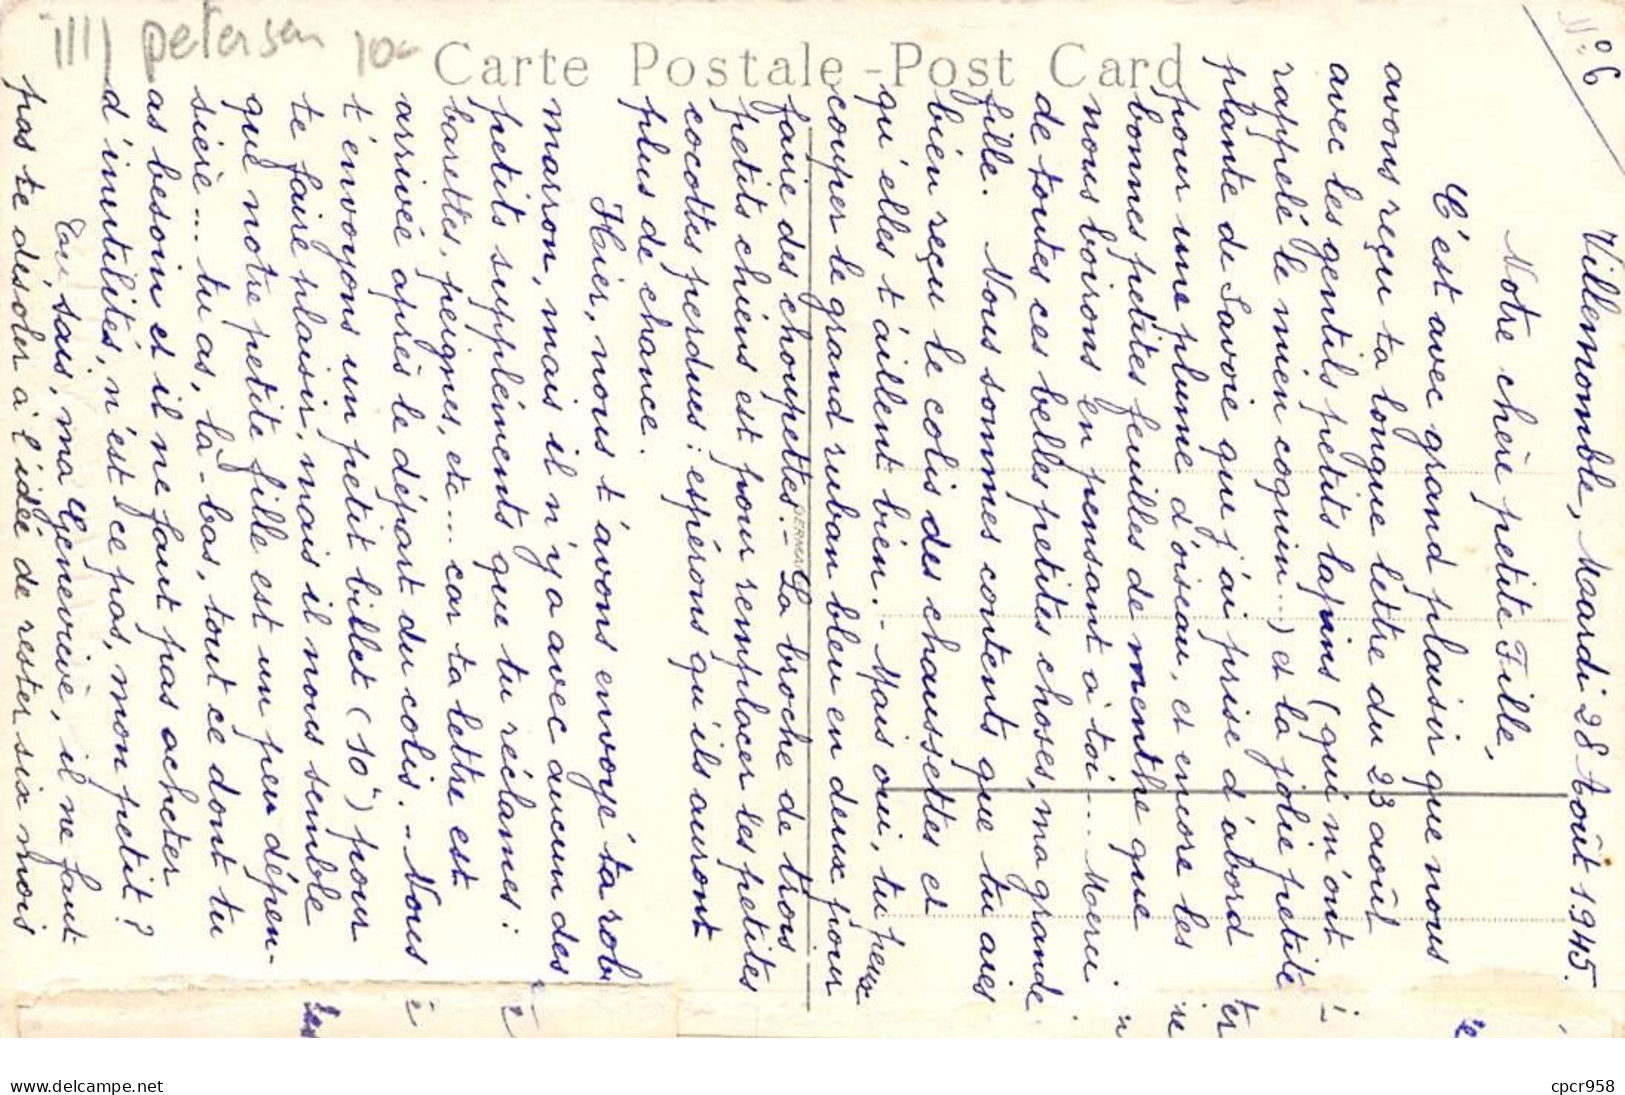 petersen 10-
Carte Postale - Post Card
N° 6
Villemomble, Mardi 28 Août 1945.
Notre chère petite Fille,
C'est avec grand plaisir que nous
avons reçu ta longue lettre du 23 août
avec les gentils petits lapins (qui m'ont
rappelé le mien coquin...) et la jolie petite
plante de Savoie que j'ai prise d'abord
pour une plume d'oiseau, et encore les
bonnes petites feuilles de menthe que
nous boirons en pensant à toi... Merci
de toutes ces belles petites choses, ma grande
fille. Nous sommes contents que tu aies
bien reçu le colis des chaussettes et
qu'elles t'aillent bien. - Mais oui, tu peux
couper le grand ruban bleu en deux pour
faire des choupettes. - La broche de trois
petits chiens est pour remplacer les petites
cocottes perdues : espérons qu'ils auront
plus de chance.
Hier, nous t'avons envoyé ta robe
marron, mais il n'y a avec aucun des
petits suppléments que tu réclames :
barettes, peignes, etc... car ta lettre est
arrivée après le départ du colis. - Nous
t'envoyons un petit billet (10") pour
te faire plaisir, mais il nous semble
que notre petite fille est un peu dépen-
sière... tu as, là-bas, tout ce dont tu
as besoin et il ne faut pas acheter
d'inutilités, n'est ce pas, mon petit ?
Tu sais, ma Geneviève, il ne faut
pas te désoler à l'idée de rester six mois
delcampe.net
cpcr958